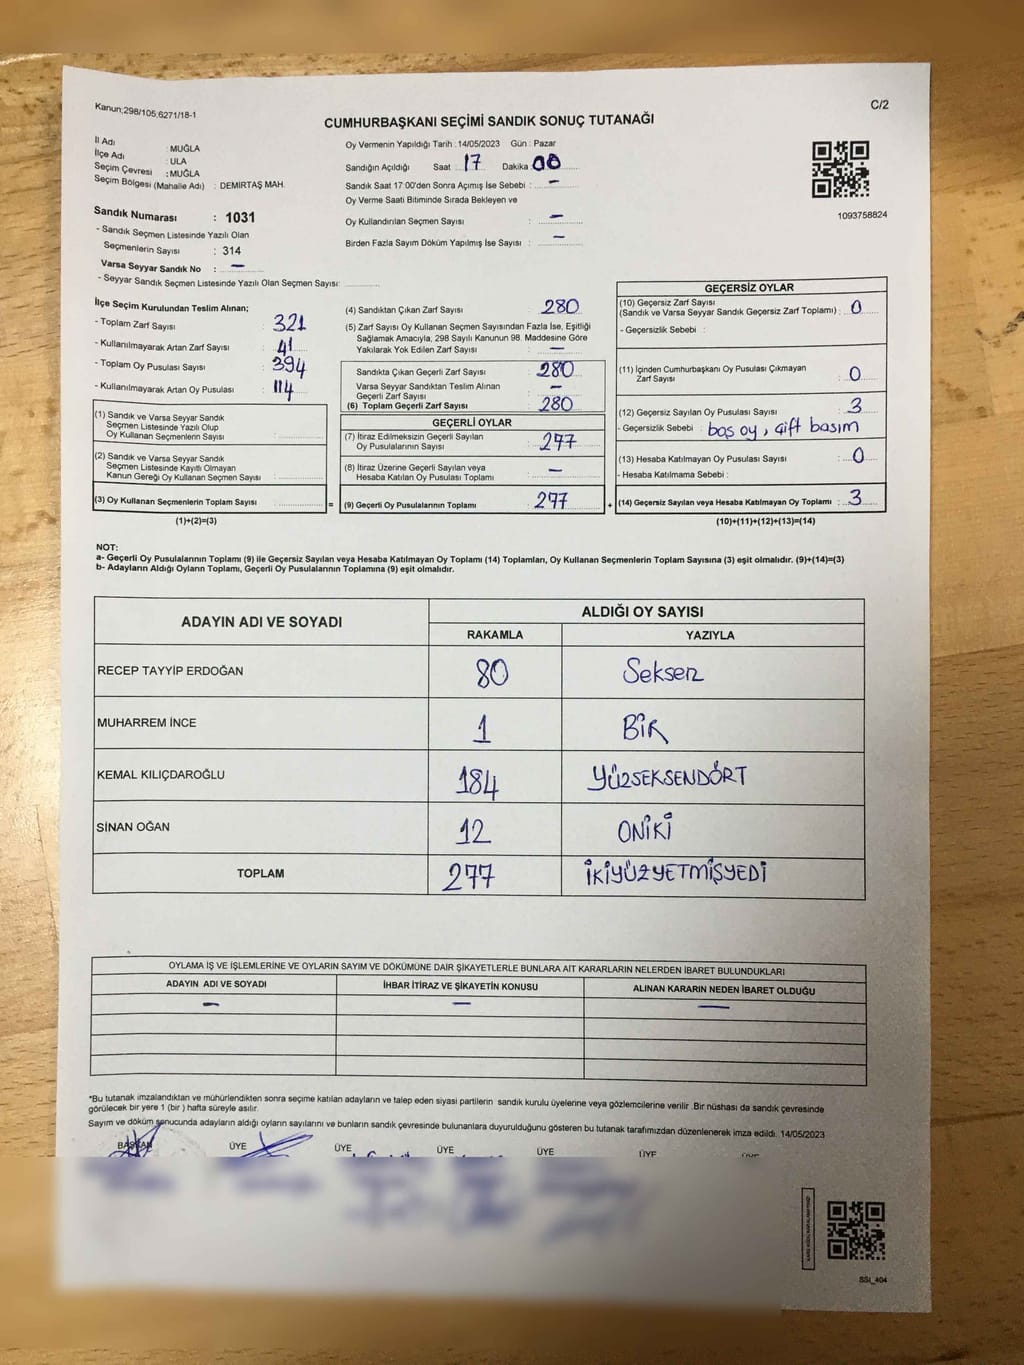 Kanun;298/105,6271/18-1
C/2
CUMHURBAŞKANI SEÇİMİ SANDIK SONUÇ TUTANAĞI
İl Adı : MUĞLA
İlçe Adı : ULA
Seçim Çevresi : MUĞLA
Seçim Bölgesi (Mahalle Adı) : DEMİRTAŞ MAH.
Sandık Numarası : 1031
- Sandık Seçmen Listesinde Yazılı Olan
Seçmenlerin Sayısı : 314
Varsa Seyyar Sandık No : –
- Seyyar Sandık Seçmen Listesinde Yazılı Olan Seçmen Sayısı:
Oy Vermenin Yapıldığı Tarih : 14/05/2023 Gün : Pazar
Sandığın Açıldığı Saat 17 Dakika 00
Sandık Saat 17:00'den Sonra Açımış İse Sebebi : –
Oy Verme Saati Bitiminde Sırada Bekleyen ve
Oy Kullandırılan Seçmen Sayısı : –
Birden Fazla Sayım Döküm Yapılmış İse Sayısı : –
1093758824
İlçe Seçim Kurulundan Teslim Alınan;
- Toplam Zarf Sayısı : 321
- Kullanılmayarak Artan Zarf Sayısı : 41
- Toplam Oy Pusulası Sayısı : 394
- Kullanılmayarak Artan Oy Pusulası : 114
(1) Sandık ve Varsa Seyyar Sandık
Seçmen Listesinde Yazılı Olup
Oy Kullanan Seçmenlerin Sayısı :
(2) Sandık ve Varsa Seyyar Sandık
Seçmen Listesinde Kayıtlı Olmayan
Kanun Gereği Oy Kullanan Seçmen Sayısı :
(3) Oy Kullanan Seçmenlerin Toplam Sayısı :
(1)+(2)=(3)
=
(4) Sandıktan Çıkan Zarf Sayısı : 280
(5) Zarf Sayısı Oy Kullanan Seçmen Sayısından Fazla İse, Eşitliği
Sağlamak Amacıyla, 298 Sayılı Kanunun 98. Maddesine Göre
Yakılarak Yok Edilen Zarf Sayısı : –
Sandıkta Çıkan Geçerli Zarf Sayısı : 280
Varsa Seyyar Sandıktan Teslim Alınan
Geçerli Zarf Sayısı : –
(6) Toplam Geçerli Zarf Sayısı : 280
GEÇERLİ OYLAR
(7) İtiraz Edilmeksizin Geçerli Sayılan
Oy Pusulalarının Sayısı : 277
(8) İtiraz Üzerine Geçerli Sayılan veya
Hesaba Katılan Oy Pusulası Toplamı : –
(9) Geçerli Oy Pusulalarının Toplamı : 277
+
GEÇERSİZ OYLAR
(10) Geçersiz Zarf Sayısı
(Sandık ve Varsa Seyyar Sandık Geçersiz Zarf Toplamı) : 0
- Geçersizlik Sebebi :
(11) İçinden Cumhurbaşkanı Oy Pusulası Çıkmayan
Zarf Sayısı : 0
(12) Geçersiz Sayılan Oy Pusulası Sayısı : 3
- Geçersizlik Sebebi : boş oy, çift basım
(13) Hesaba Katılmayan Oy Pusulası Sayısı : 0
- Hesaba Katılmama Sebebi :
(14) Geçersiz Sayılan veya Hesaba Katılmayan Oy Toplamı : 3
(10)+(11)+(12)+(13)=(14)
NOT:
a- Geçerli Oy Pusulalarının Toplamı (9) ile Geçersiz Sayılan veya Hesaba Katılmayan Oy Toplamı (14) Toplamları, Oy Kullanan Seçmenlerin Toplam Sayısına (3) eşit olmalıdır. (9)+(14)=(3)
b- Adayların Aldığı Oyların Toplamı, Geçerli Oy Pusulalarının Toplamına (9) eşit olmalıdır.
ADAYIN ADI VE SOYADI
ALDIĞI OY SAYISI
RAKAMLA YAZIYLA
RECEP TAYYİP ERDOĞAN 80 Seksen
MUHARREM İNCE 1 BİR
KEMAL KILIÇDAROĞLU 184 YÜZSEKSENDÖRT
SİNAN OĞAN 12 ONİKİ
TOPLAM 277 İKİYÜZYETMİŞYEDİ
OYLAMA İŞ VE İŞLEMLERİNE VE OYLARIN SAYIM VE DÖKÜMÜNE DAİR ŞİKAYETLERLE BUNLARA AİT KARARLARIN NELERDEN İBARET BULUNDUKLARI
ADAYIN ADI VE SOYADI İHBAR İTİRAZ VE ŞİKAYETİN KONUSU ALINAN KARARIN NEDEN İBARET OLDUĞU
– – –
*Bu tutanak imzalandıktan ve mühürlendikten sonra seçime katılan adayların ve talep eden siyasi partilerin sandık kurulu üyelerine veya gözlemcilerine verilir. Bir nüshası da sandık çevresinde
görülecek bir yere 1 (bir) hafta süreyle asılır.
Sayım ve döküm sonucunda adayların aldığı oyların sayılarını ve bunların sandık çevresinde bulunanlara duyurulduğunu gösteren bu tutanak tarafımızdan düzenlenerek imza edildi. 14/05/2023
BAŞKAN ÜYE ÜYE ÜYE ÜYE ÜYE
SSİ_404